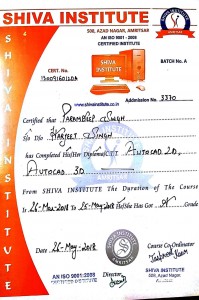 SHIVA INSTITUTE
500, AZAD NAGAR, AMRITSAR
AN ISO 9001-2008
CERTIFIED INSTITUTE
CERT. NO.
BATCH No. A
www.shivainstitute.co.in
Admission No. 3370
Certified that Paramdeep Singh
S/o D/o Harjeet Singh
has Completed His/Her Diploma/C.T.T. AutoCad 2D,
AutoCad 3D
From SHIVA INSTITUTE The Duration of the Course
Is 26-Mar-2018 To 25-May-2018 He/She Has Got Grade
Date 26-May-2018
Course Co-Ordinator
AN ISO 9001:2008
Director
SHIVA INSTITUTE
500, Azad Nagar
SHIVA INSTITUTE